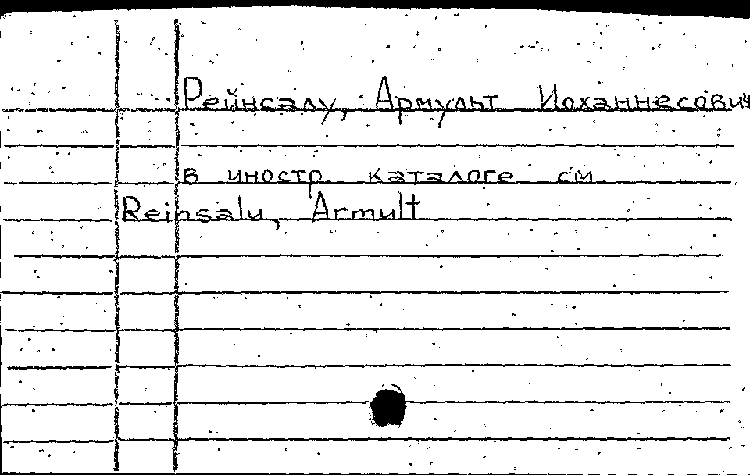 Рейнсалу, Армульт Иоханнесович
в иностр. каталоге см.
Reinsalu, Armult